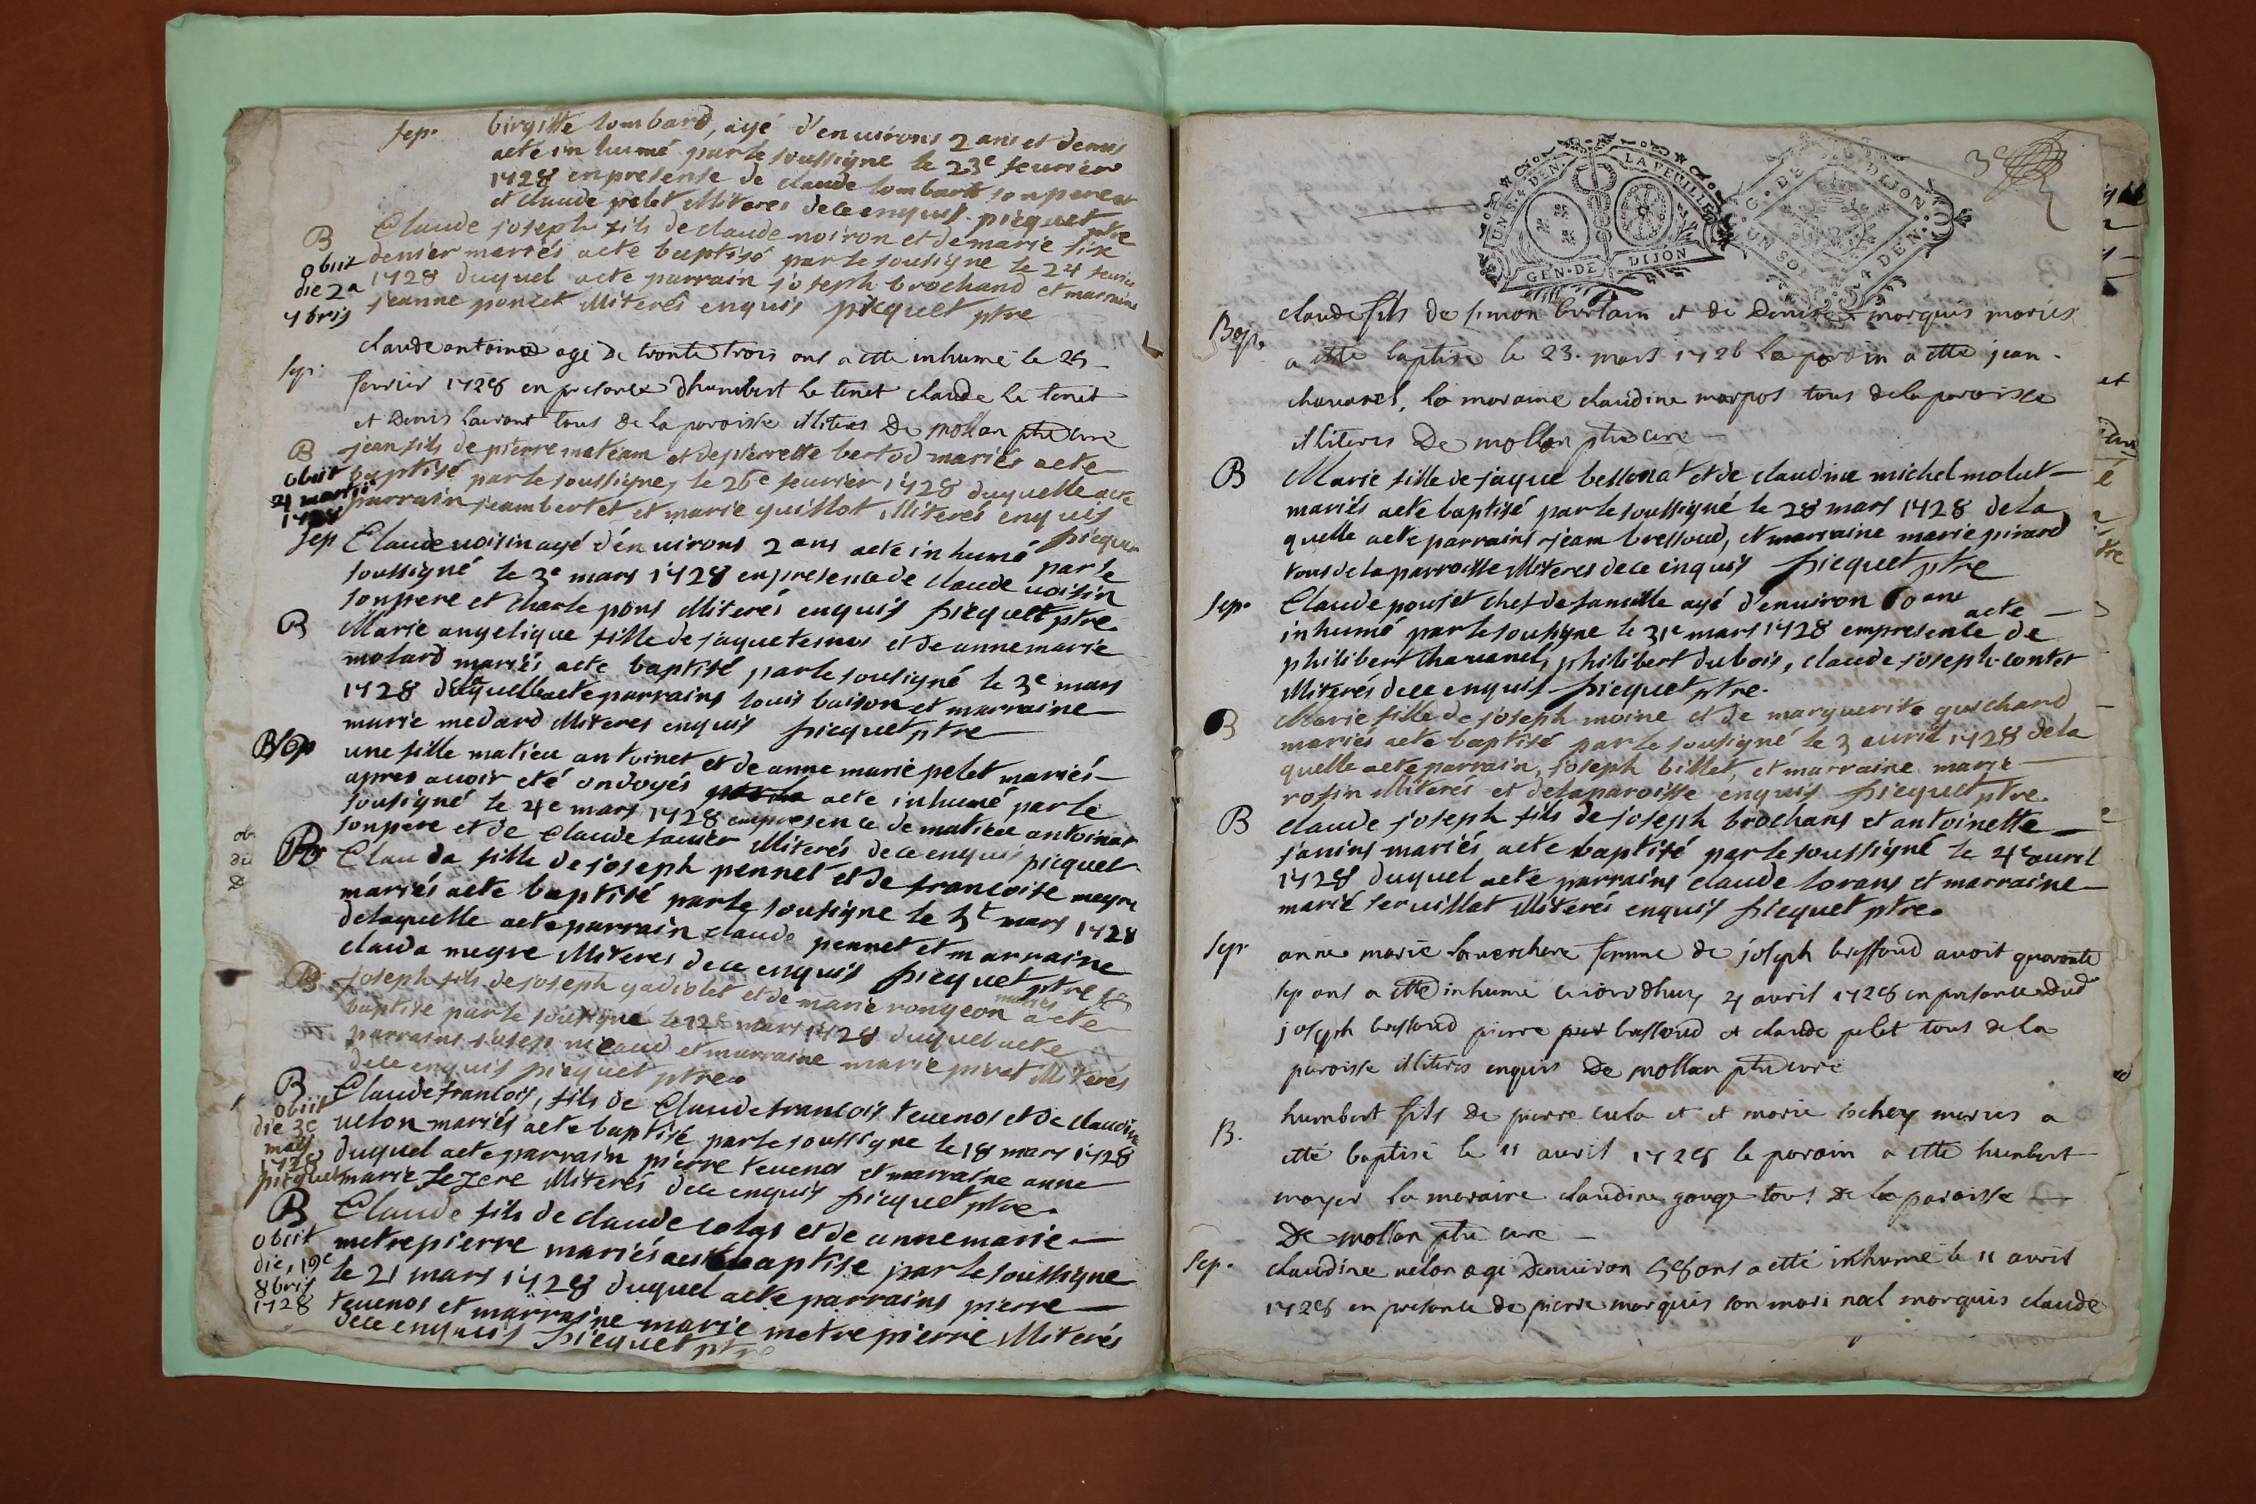 sep. birgitte lombard, ayé d'environs 2 ans et demis
acte inhumé par le soussigne le 23e feurier
1728 en presense de claude lombart son pere et
et claude pelet illiteres de ce enquis. picquet ptre
B Claude joseph fils de claude noiron et de marie
obiit denier mariés acte baptisé par le sousigne le 24 feurier
die 2a 1728 duquel acte parrain joseph brochand et marraine
9bris jeanne poncet illiterés enquis picquet ptre
claude antoine agé de tronte trois ans a etté inhumé le 25
sep. feurier 1728 en presance dhumbert le tenet claude le tenet
et Denis laurant tous de la paroisse illiteres De mollan ptre curé
B jean fils de pierre mateam et de pierrette bertod mariés acte
obiit baptisé par le soussigne, le 26e feurier 1728 duquelle acte
21 martii parrain jeambertet et marie guillot illiterés enquis
1728 picquet
sep Claude uoisin ayé d'enuirons 2 ans acte inhumé par le
soussigné le 3e mars 1728 en presence de claude uoisin
son pere et charle pons illiterés enquis picquet ptre
B Marie angelique fille de jaque tesnes et de anne marie
molard mariés acte baptisé par le sousigné le 3e mars
1728 de laquelle acte parrains louis buison et marraine
marie medard illiteres enquis picquet ptre
B Sep une fille matieu antoinet et de anne marie pelet mariés
apres auoir eté ondoyés acte inhumé par le
sousigné le 4e mars 1728 en presence de matieu antoinet
son pere et de Claude sauier illiterés de ce enquis picquet
B Clauda fille de joseph pennet et de francoise megre
mariés acte baptisé par le sousigne le 5e mars 1728
de laquelle acte parrain claude pennet et marraine
clauda megre illiteres de ce enquis picquet ptre
B joseph fils de joseph gadiolet et de marie rongeon mariés acte
baptisé par le sousigne le 12e mars 1728 duquel acte
parrains josep nicaud et marraine marie pivet illiterés
de ce enquis picquet ptre
B Claude francois, fils de Claude francois teuenos et de claudine
obiit uelon mariés acte baptisé par le soussigne le 18 mars 1728
die 3e duquel acte parrain pierre teuenos et marraine anne
maii 1728 picquet marie Jezere illiterés de ce enquis picquet ptre.
B Claude fils de claude colas et de anne marie
obiit metrepierre mariés acte baptise par le soussigne
die, 19e le 21 mars 1728 duquel acte parrains pierre
8bris 1728 teuenos et marraine marie metrepierre illiterés
de ce enquis picquet ptre
3e
UN S. 4 DEN. LA FEUILLE
GEN. DE DIJON
G. DE DIJON
UN SOL 4 DEN.
Bap. claude fils de simon bertain et de Denise marquis mariés
a etté baptisé le 23. mars 1728 le parain a etté jean
chavanel, la maraine claudine marpos tous de la paroisse
illiteres De mollan ptre curé
B Marie fille de jaque bessonat et de claudine michel molut
mariés acte baptisé par le soussigné le 28 mars 1728 de la
quelle acte parrains jeam bressoud, et marraine marie pirard
tous de la parroisse illiteres de ce enquis picquet ptre
sep. Claude pouset chef de famille ayé d'enuiron 60 ans acte
inhumé par le sousigne le 31e mars 1728 em presente de
philibert Chavanel, philibert dubois, claude joseph contet
illiterés de ce enquis picquet ptre.
B Marie fille de joseph moine et de marguerite guichard
mariés acte baptisé par le sousigné le 3 auril 1728 de la
quelle acte parrain, joseph billet, et marraine marie
rosin illiterés et de la paroisse enquis picquet ptre.
B claude joseph fils de joseph brochans et antoinette
janins mariés acte baptisé par le soussigné le 4e auril
1728 duquel acte parrains claude lorans et marraine
marie seruillat illiterés enquis picquet ptre.
sep. anne marie lauerchere femme de joseph bressoud avoit quarante
sep ans a etté inhumé aiourdhuy 4 avril 1728 en presance dud
joseph bressoud pierre bressoud et claude pelet tous de la
paroisse illiteres enquis De mollan ptre curé
B. humbert fils de pierre cula et et marie lochey mariés a
etté baptisé le 11 avril 1728 le parain a etté humbert
moyer la maraine claudine gouge tous De la paroisse
De mollan ptre cure
Sep. claudine uelon agé Denuiron 58 ans a etté inhumé le 11 avril
1728 en presante de pierre marquis son mari noel marquis claude